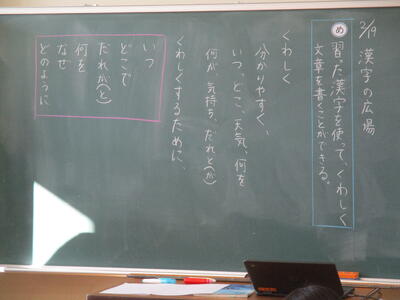 2/19 漢字の広場
め 習った漢字を使って、くわしく
文章を書くことができる。
くわしく
分かりやすく、
いつ、どこ、天気、何を
何が、気持ち、だれと(が)
くわしくするために、
いつ
どこで
だれが(と)
何を
なぜ
どのように